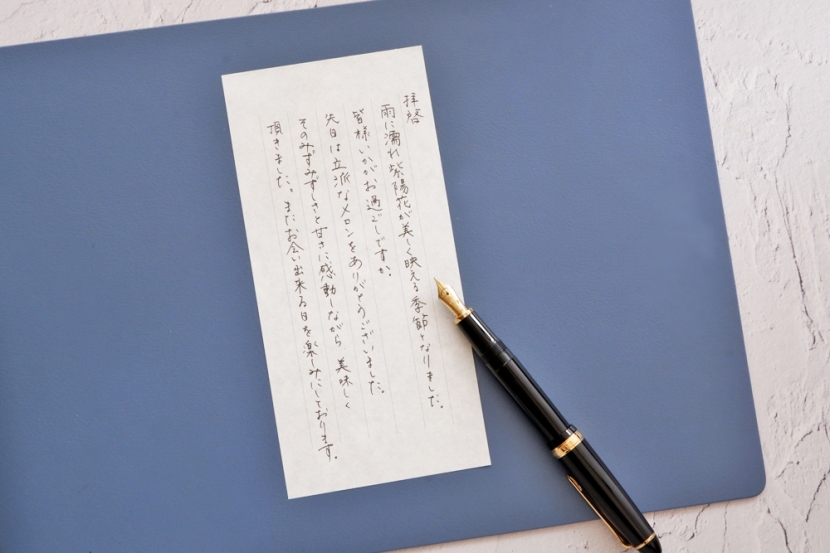 拝啓
雨に濡れ紫陽花が美しく映える季節となりました。
皆様いかがお過ごしですか。
先日は立派なメロンをありがとうございました。
そのみずみずしさと甘さに感動しながら 美味しく
頂きました。またお会い出来る日を楽しみにしております。